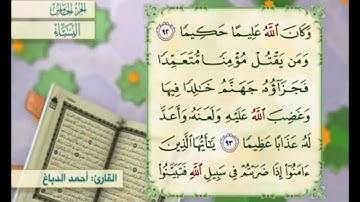 الجزء الخامس
النساء
وَكَانَ اللَّهُ عَلِيمًا حَكِيمًا ﴿٩٢﴾
وَمَن يَقْتُلْ مُؤْمِنًا مُّتَعَمِّدًا
فَجَزَآؤُهُ جَهَنَّمُ خَالِدًا فِيهَا
وَغَضِبَ اللَّهُ عَلَيْهِ وَلَعَنَهُ وَأَعَدَّ
لَهُ عَذَابًا عَظِيمًا ﴿٩٣﴾ يَا أَيُّهَا الَّذِينَ
ءَامَنُوا إِذَا ضَرَبْتُمْ فِي سَبِيلِ اللَّهِ فَتَبَيَّنُوا
القارئ: أحمد الدباغ